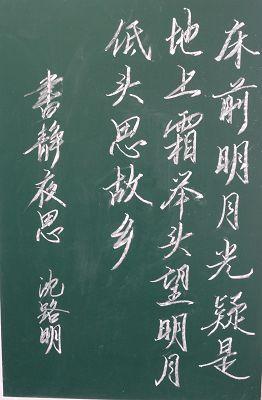 床前明月光疑是
地上霜举头望明月
低头思故乡
書静夜思 沈路明